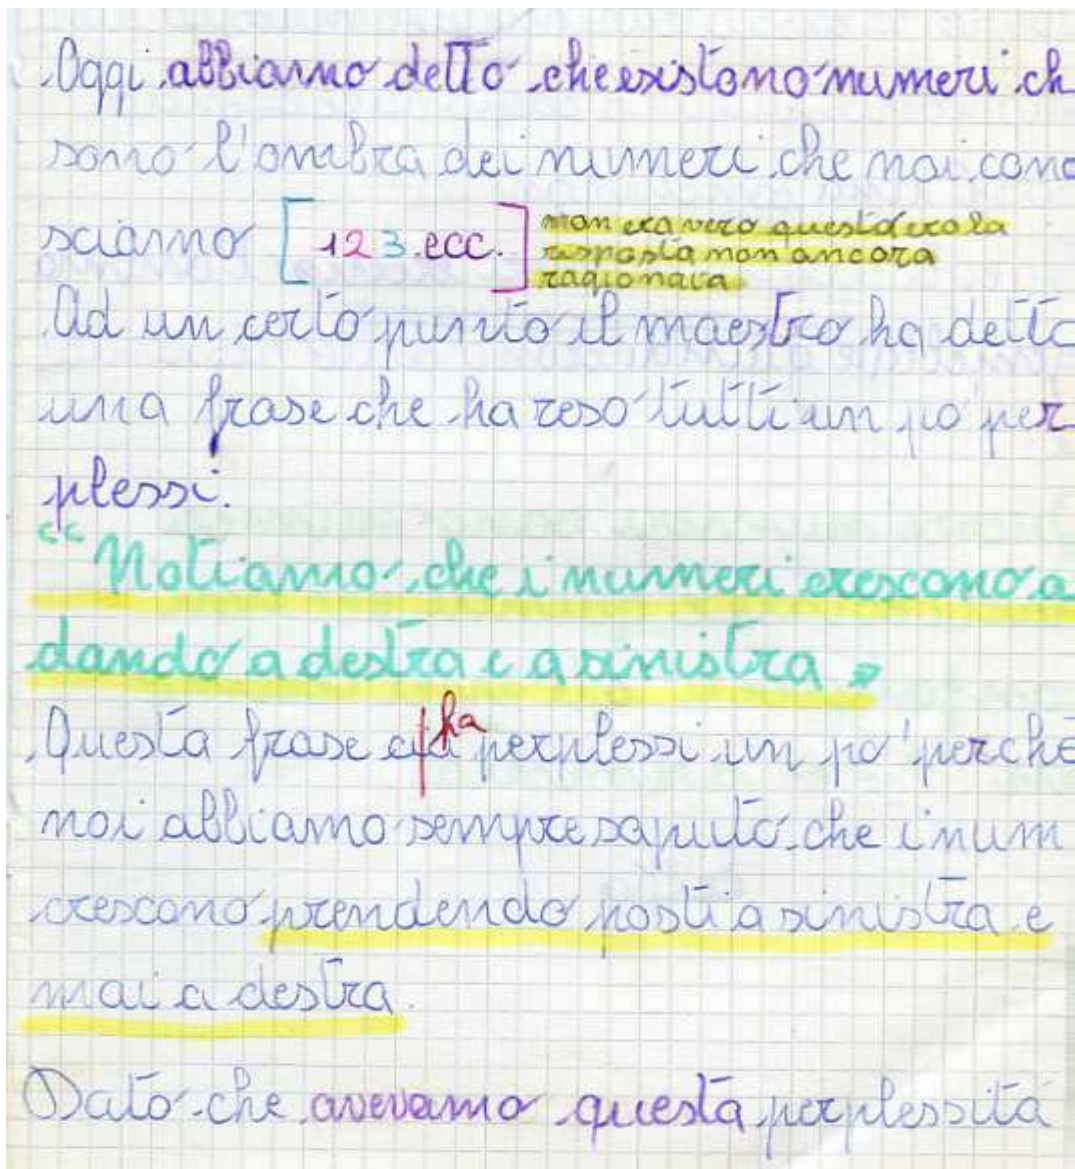 Oggi abbiamo detto che esistono numeri ch
sono l'ombra dei numeri che noi cono
sciamo [1 2 3 ecc.]
non era vero quest'era la
risposta non ancora
ragionata
Ad un certo punto il maestro ha detto
una frase che ha reso tutti un po per
plessi.
"Notiamo che i numeri crescono a
dando a destra e a sinistra"
Questa frase ci ha perplessi un po' perchè
noi abbiamo sempre saputo che i num
crescono prendendo posti a sinistra e
mai a destra.
Dato che avevamo questa perplessità